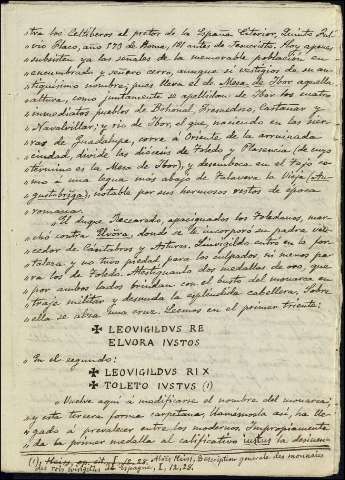 tra los Celtíberos el pretor de la España Citerior, Quinto Ful-
vio Flaco, año 573 de Roma, 181 antes de Jesucristo. Hoy apenas
subsisten ya las señales de la memorable población en
encumbrado y señero cerro, aunque sí vestigios de su an-
tiquísimo nombre; pues lleva el de Mesa de Ibor aquella
altura, como juntamente se apellidan de Ibor los cuatro
inmediatos pueblos de Bohonal, Fresnedoso, Castañar y
Navalvillar; y río de Ibor, el que, naciendo en las sier-
ras de Guadalupe, corre á Oriente de la arruinada
ciudad, divide las diócesis de Toledo y Plasencia (de cuyo
término es la Mesa de Ibor), y desemboca en el Tajo co-
mo á una legua más abajo de Talavera la Vieja (Au-
gustobriga), notable por sus hermosos restos de época
romana.
El duque Reccaredo, apaciguados los Toledanos, mar-
chó contra Elvora, donde se le incorporó su padre, ven-
cedor de Cántabros y Astures. Leuvigildo entró en la for-
taleza y no tuvo piedad para los culpados, ni menos pa-
ra los de Toledo. Atestíguanlo dos medallas de oro, que
por ambos lados brindan con el busto del monarca en
traje militar y desnuda la espléndida cabellera. Sobre
ella se alza una cruz. Leemos en el primer triente:
✠ LEOVIGILDVS RE
ELVORA IVSTOS
" En el segundo:
✠ LEOVIGILDVS RIX
✠ TOLETO IVSTVS (1)
" Vuelve aquí á modificarse el nombre del monarca;
" y esta tercera forma carpetana, llamémosla así, ha lle-
" gado á prevalecer entre los modernos. Impropiamente
" da la primer medalla al calificativo iustus la desinen-
(1) Heiss, op. cit. I, 12, 28. Aloïs Heiss, Description générale des monnaies
des rois wisigoths de Espagne, I, 12, 28.